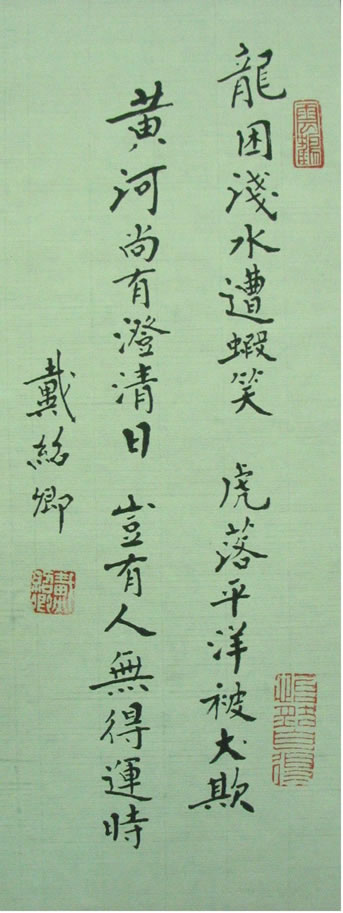 雲鶴
龍困淺水遭蝦笑 虎落平洋被犬欺
黃河尚有澄清日 豈有人無得運時
戴紹卿
戴紹卿